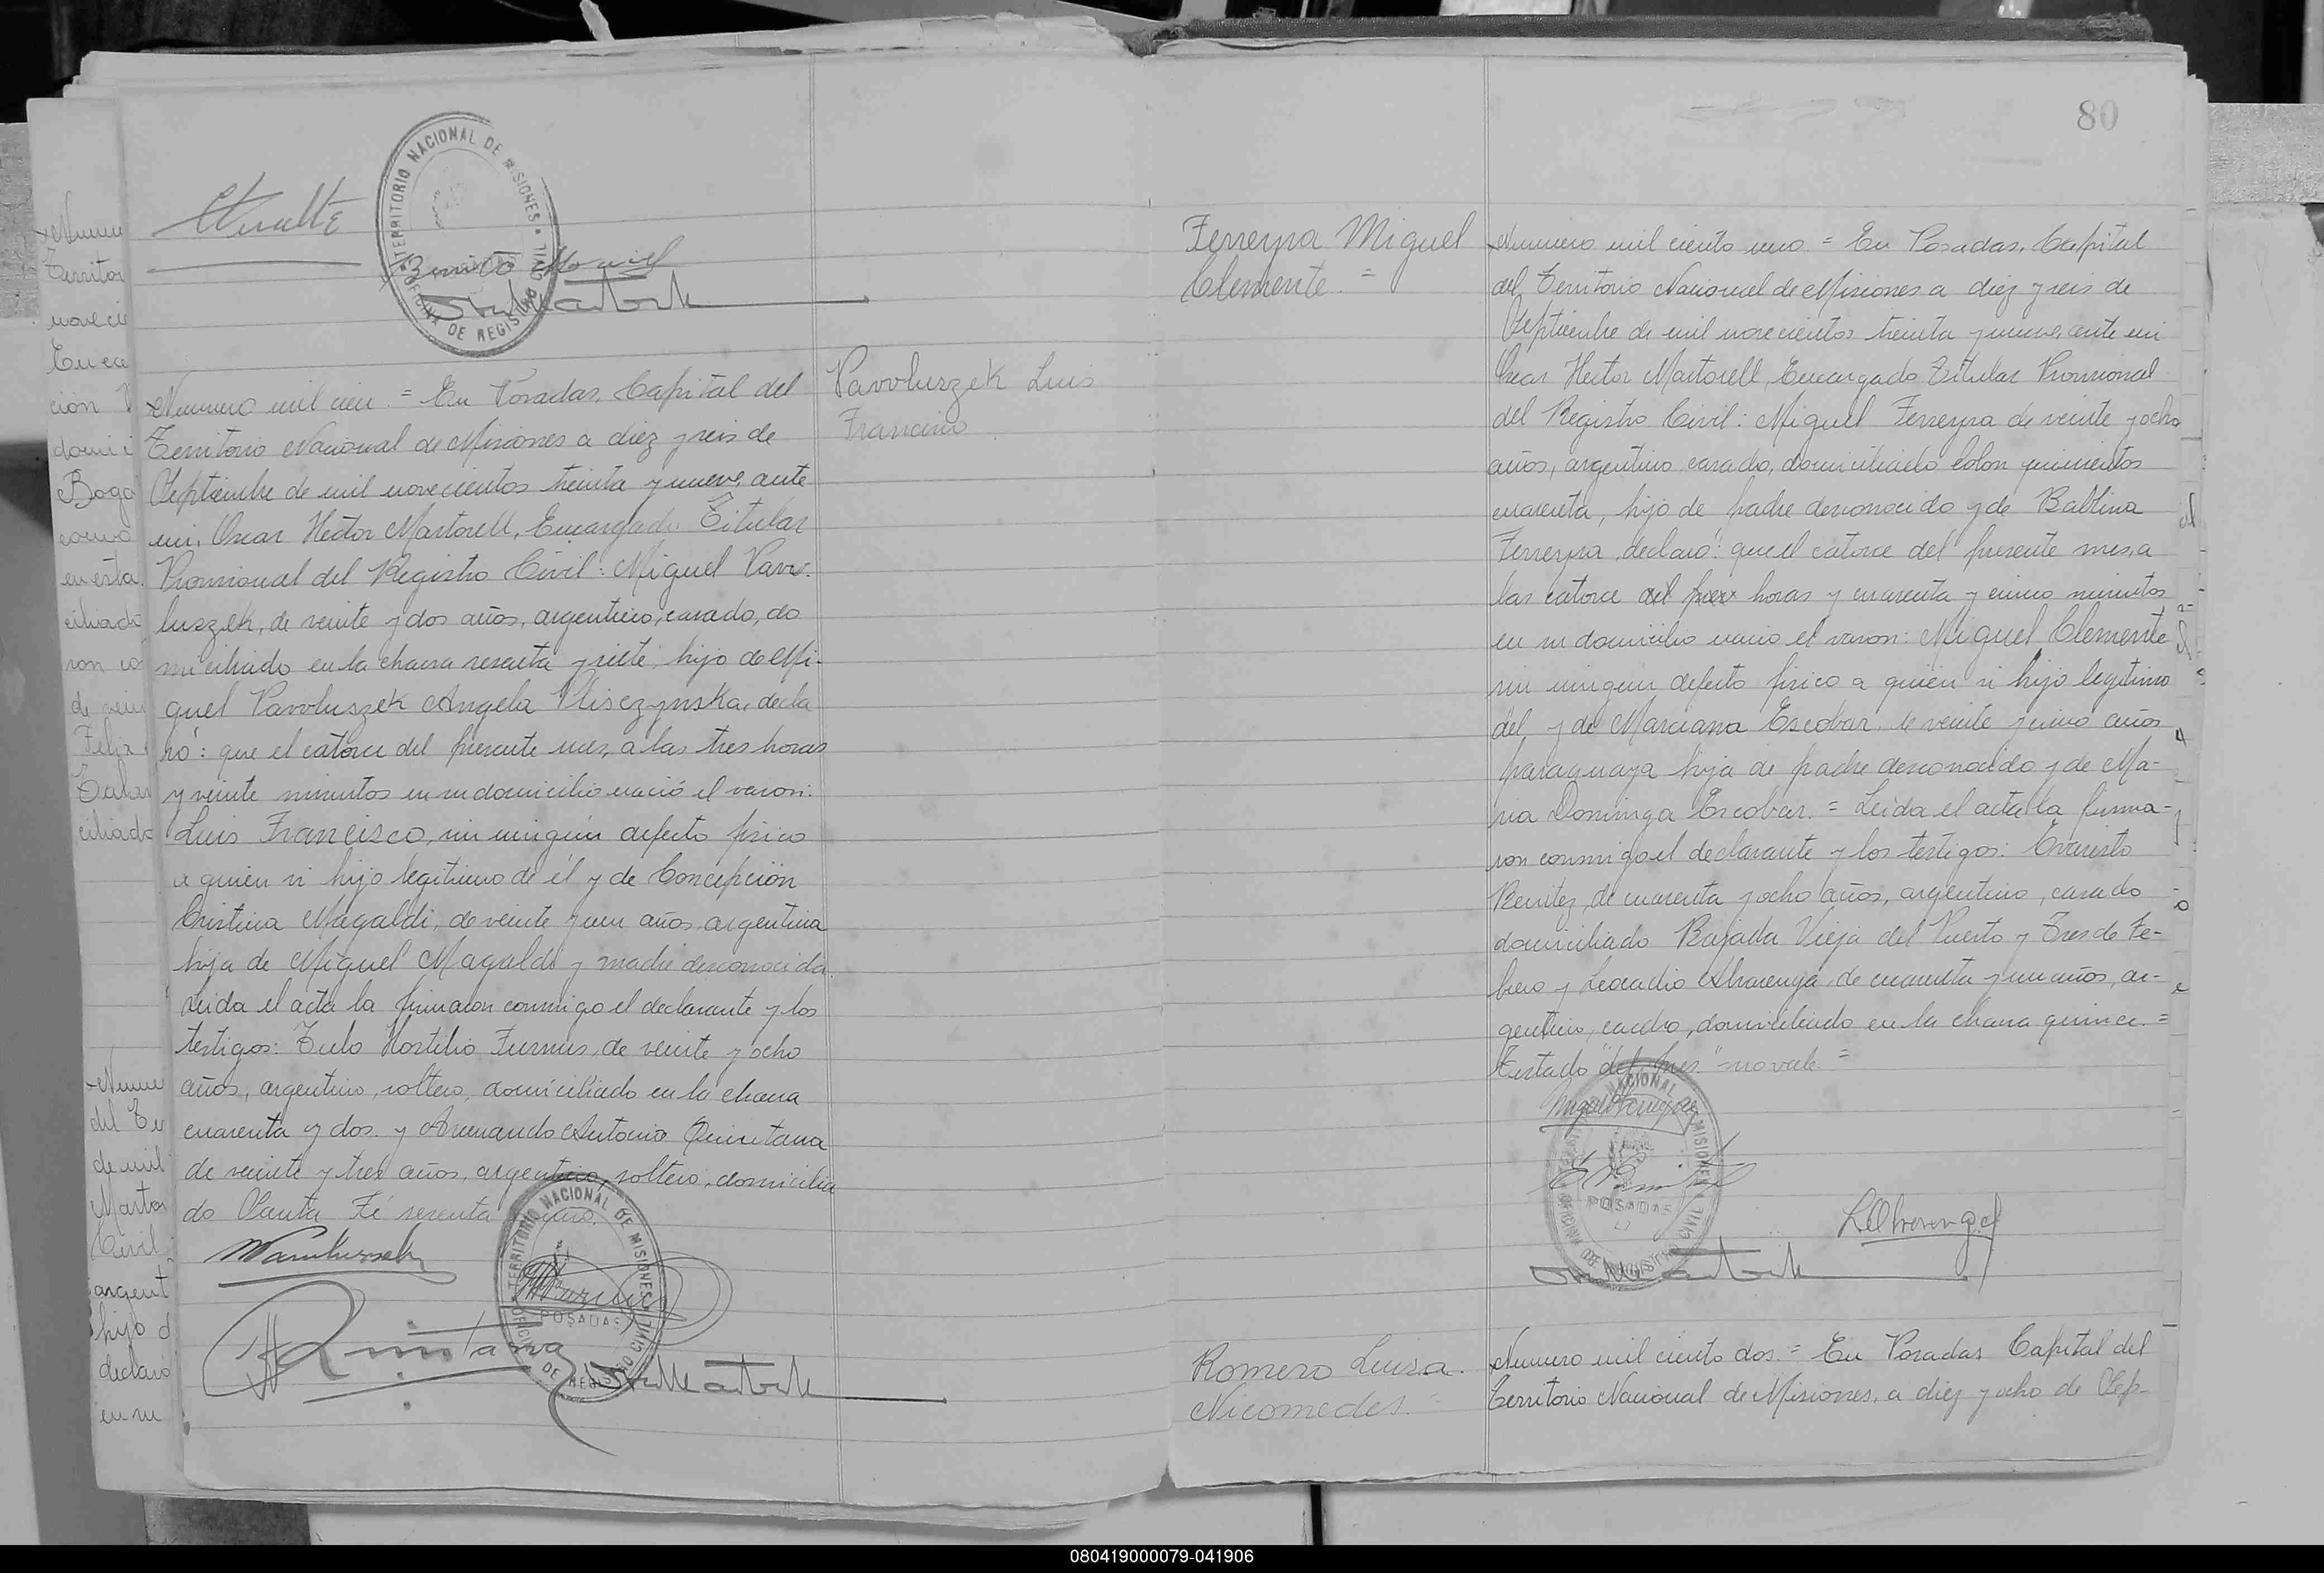 TERRITORIO NACIONAL DE MISIONES
OFICINA DE REGISTRO CIVIL
Pavoluszek Luis
Francisco
Numero mil cien. = En Posadas, Capital del
Territorio Nacional de Misiones a diez y seis de
Septiembre de mil novecientos treinta y nueve, ante
mi, Oscar Hector Martorell, Encargado Titular
Provisional del Registro Civil: Miguel Pavo-
luszek, de veinte y dos años, argentino, casado, do
miciliado en la chacra sesenta y siete, hijo de Mi-
guel Pavoluszek Angela Plisczynska, decla
ró: que el catorce del presente mes, a las tres horas
y veinte minutos en su domicilio nació el varon:
Luis Francisco, sin ningún defecto fisico
a quien vi hijo legitimo de él y de Concepción
Cristina Magaldi, de veinte y un años argentina
hija de Miguel Magaldi y madre desconocida
Leida el acta la firmaron conmigo el declarante y los
testigos: Tulo Hostilio Furnus, de veinte y ocho
años, argentino, soltero, domiciliado en la chacra
cuarenta y dos. y Armando Antonio Quintana
de veinte y tres años, argentino, soltero, domicilia
do Santa Fé sesenta
TERRITORIO NACIONAL DE MISIONES
POSADAS
OFICINA DE REGISTRO CIVIL
Quintana
80
Ferreyra Miguel
Clemente. =
Numero mil ciento uno = En Posadas, Capital
del Territorio Nacional de Misiones a diez y seis de
Septiembre de mil novecientos treinta y nueve, ante mi
Oscar Hector Martorell, Encargado Titular Provisional
del Registro Civil: Miguel Ferreyra de veinte y ocho
años, argentino, casado, domiciliado Colon quinientos
cuarenta, hijo de padre desconocido y de Baltina
Ferreyra, declaró: que el catorce del presente mes, a
las catorce del pres horas y cuarenta y cinco minutos
en su domicilio nacio el varon: Miguel Clemente
sin ningun defecto fisico a quien vi hijo legitimo
del y de Marciana Escobar, de veinte y cinco años
paraguaya hija de padre desconocido y de Ma-
ria Dominga Escobar. = Leida el acta la firma-
ron conmigo el declarante y los testigos: Evaristo
Benitez, de cuarenta y ocho años, argentino, casado
domiciliado Bajada Vieja del Puerto y Tres de Fe-
brero y Leocadio Alvarenga de cuarenta y un años, ar-
gentino, casado, domiciliado en la chacra quince. =
Testado "del pres" no vale. =
Miguel Ferreyra
E Benitez
NACIONAL DE MISIONES
POSADAS
OFICINA DE REGISTRO CIVIL
L Alvarenga
Romero Luisa.
Nicomedes. =
Numero mil ciento dos. = En Posadas Capital del
Territorio Nacional de Misiones, a diez y ocho de Sep-
080419000079-041906